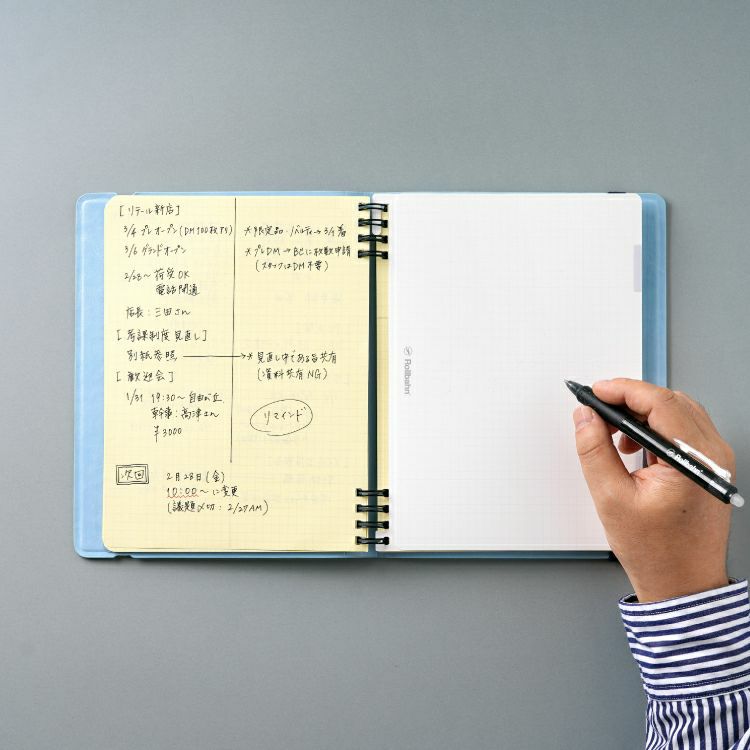 [リテール新店]
3/4 プレオープン(DM100枚TS)
3/6 グランドオープン
2/28〜 荷受OK
電話開通
店長：三田さん
*限定品・ノベルティ→3/1着
*プレDM→BCに枚数申請
(スタッフはDM不要)
[等課制度見直し]
別紙参照 → *見直し中である旨共有
(資料共有NG)
[歓迎会]
1/31 19:30〜 自由が丘
幹事：高津さん
¥3000
リマインド
次回
2月28日(金)
10:00〜に変更
(議題〆切：2/27AM)
Rollbahn
Rollbahn